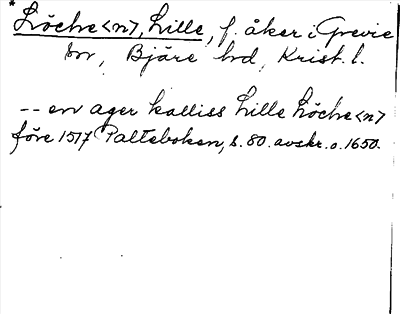 *Löche<n>, Lille, f. åker i Grevie
sn, Bjäre hd, Krist. l.
-- en ager kalliss Lille Löche<n>
före 1517 Palteboken, s. 80. avskr. o. 1650.